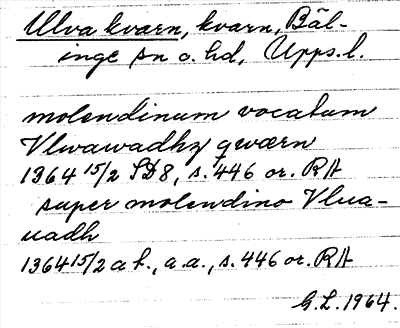 Ulva kvarn, kvarn, Bäl-
inge sn o. hd, Upps. l.
molendinum vocatum
Vlwawadhzqwærn
1364 15/2 SD8, s. 446 or. RA
super molendino Vlua-
uadh
1364 15/2 a f., a.a., s. 446 or. RA
G.L. 1964.